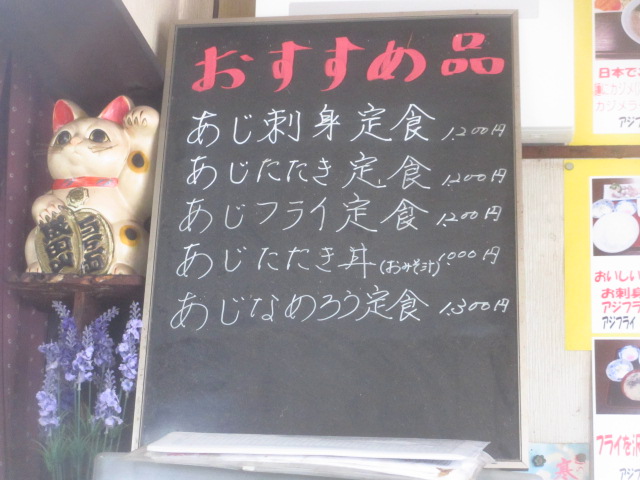 おすすめ品
あじ刺身定食 1,200円
あじたたき定食 1,200円
あじフライ定食 1,200円
あじたたき丼(おみそ汁) 1,000円
あじなめろう定食 1,300円
日本で
カジメ
アジフ
おいしい
お刺身
アジフラ
アジフライ
フライを沢
アジフ
寒